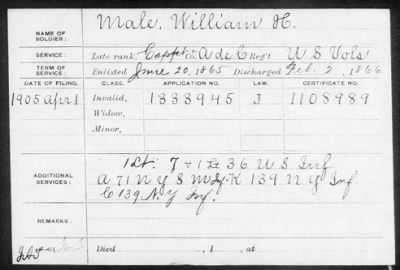 NAME OF SOLDIER: Male, William H.
SERVICE: Late rank, Capt & A de C Reg't U S Vols
TERM OF SERVICE: Enlisted June 20, 1865 Discharged Feb. 2, 1866
DATE OF FILING. CLASS. APPLICATION NO. LAW. CERTIFICATE NO.
1905 Apr 1 Invalid, 1333945 J 1108989
Widow,
Minor,
ADDITIONAL SERVICES: 1 Lt. 7 + 1 Lt 36 U S Inf
A 71 N Y S M K 139 N Y Inf
C 139 N.Y Inf.
REMARKS:
Died , 1 , at